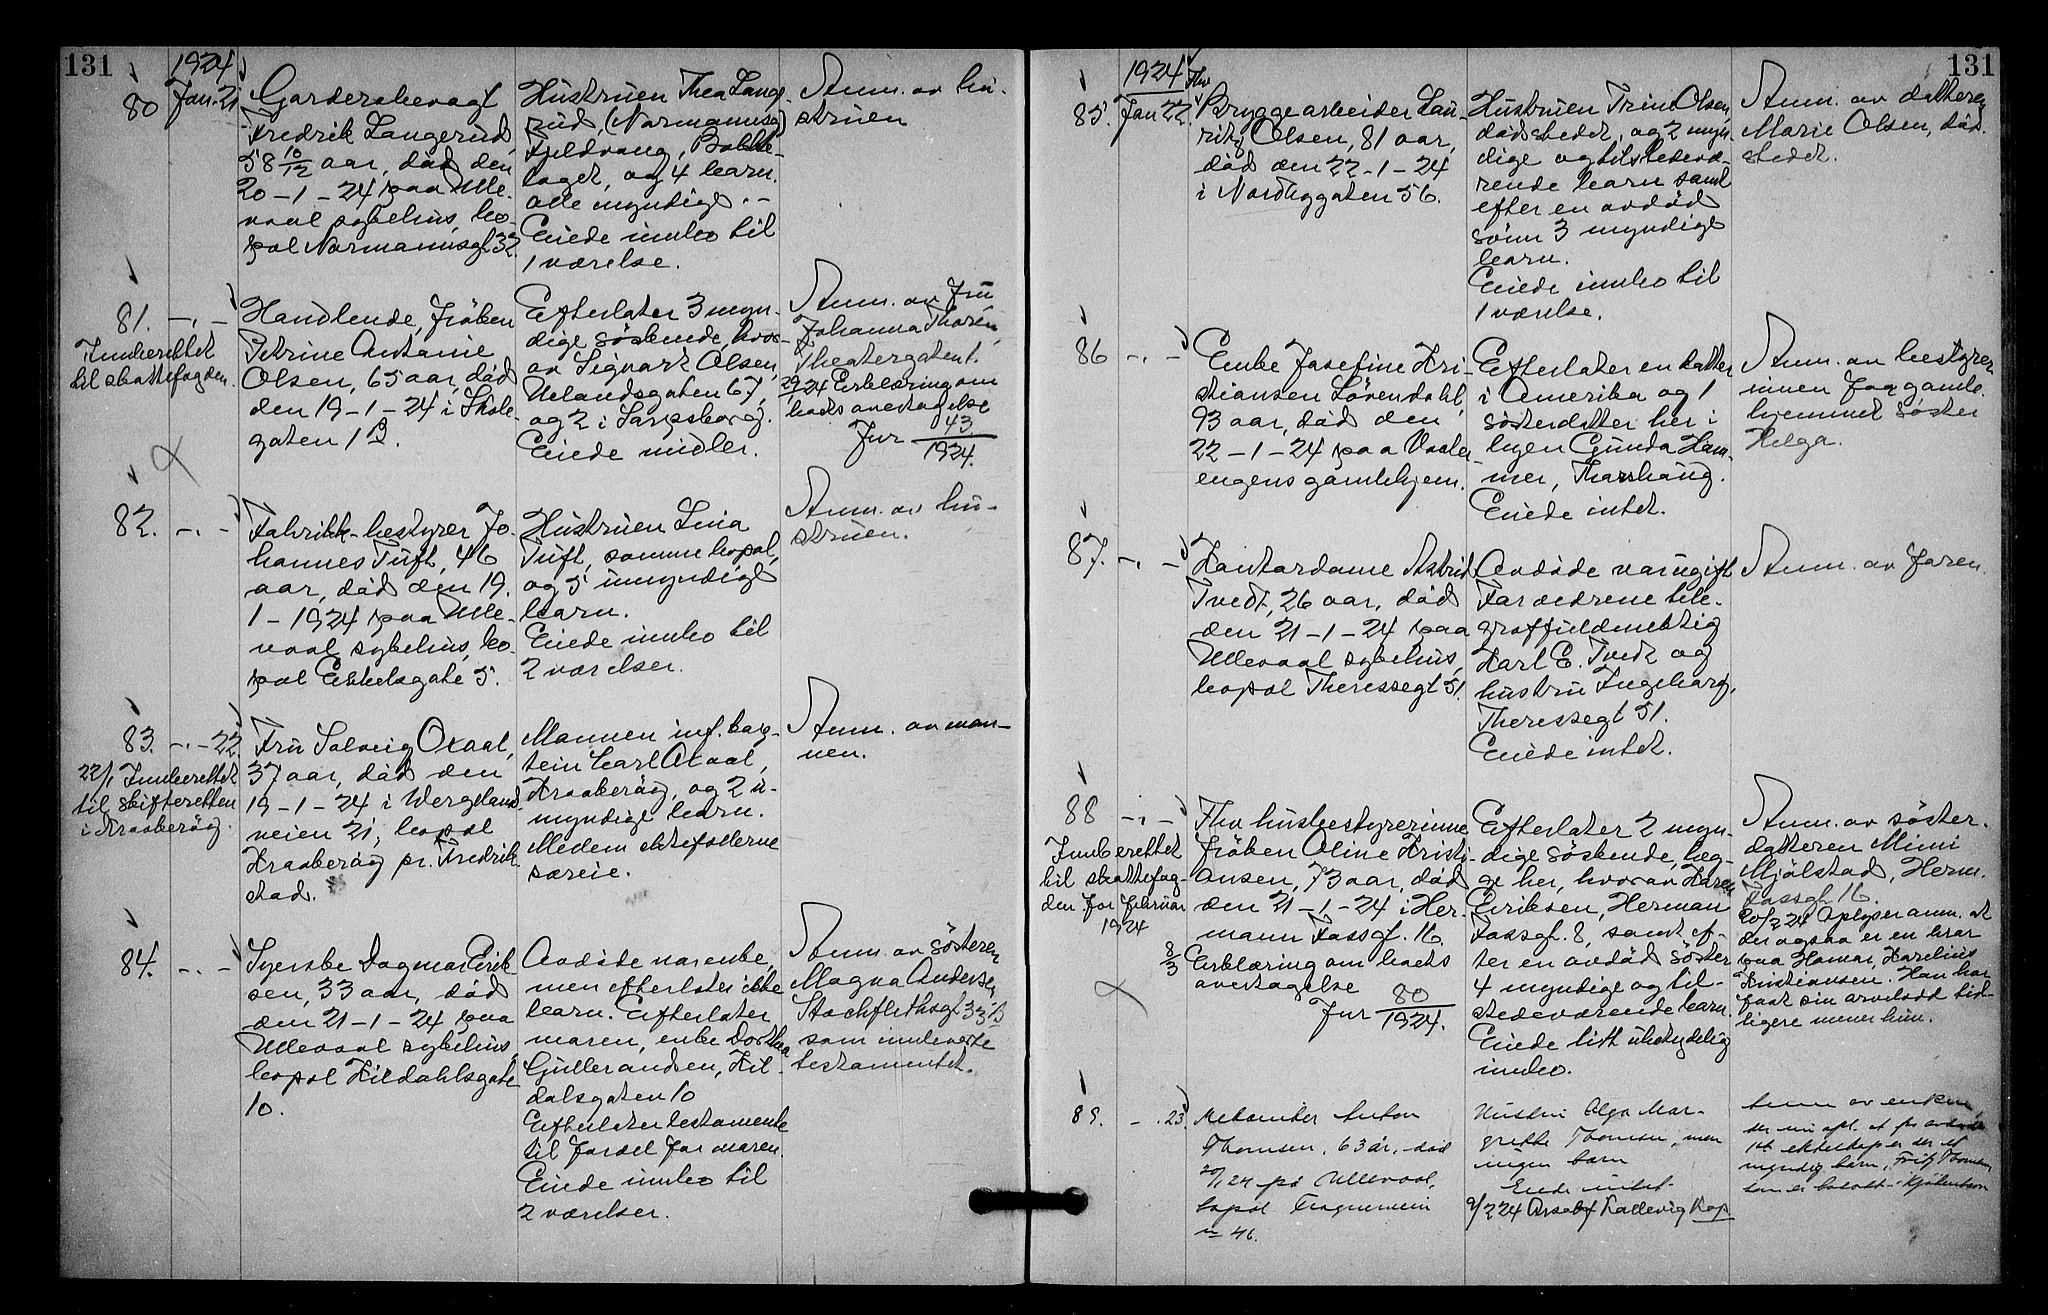 131
1924
80 Jan. 21
Garderobevagt
Fredrik Langerud,
58 10/12 aar, død den
20-1-24 paa Ulle-
vaal sykehus, bo-
pæl Normannsgt 32
Hustruen Thea Lange-
rud, (Normannsg)
Fjeldvang,
laget, og 4 barn.
alle myndige. -
Eiede innbo til
1 værelse.
Anm. av hu-
struen
81. -.-
Innberettet
til skattefogden.
Handlende, frøken
Petrine Antonie
Olsen, 65 aar, død
den 19-1-24 i Skole-
gaten 1 B.
Efterlater 3 myn-
dige søskende, hvor-
av Sigvart Olsen
Uelandsgaten 67,
og 2 i Sarpsborg.
Eiede midler.
Anm. av fru
Johanna Thorén,
Theatergaten 1.
29/1 24 Erklæring om
boets overtagelse
Jnr 43/1924.
82. -.-
Fabrikk-bestyrer Jo-
hannes Tuft, 46
aar, død den 19.
1-1924 paa Ulle-
vaal sykehus, bo-
pæl Eckelsgate 5.
Hustruen Lina
Tuft, samme bopæl,
og 5 umyndige
barn.
Eiede innbo til
2 værelser.
Anm. av hu-
struen.
83. -.-22
22/1 Innberettet
til skifteretten
i Kraakerøy.
Fru Solveig Oxaal,
37 aar, død den
19-1-24 i Wergeland-
veien 21, bopæl
Kraakerøy pr. Fredrik-
stad.
Mannen inf. kap-
tein Carl Oxaal,
Kraakerøy, og 2 u-
myndige barn.
Mellem ektefollerne
særeie.
Anm. av man-
nen.
84. -.-
Syerske Dagmar Erik
sen, 33 aar, død
den 21-1-24 paa
Ullevaal sykehus,
bopæl Hildahlsgate
10.
Avdøde var enke,
men efterlater ikke
barn. Efterlater
moren, enke Dorthea
Gulbrandsen, Hil-
dalsgaten 10
Efterlater testamente
til fordel for moren.
Eiede innbo til
2 værelser.
Anm. av søsteren
Magna Andersen
Stockflethsgt 33 B
som innleverte
testamentet.
131
1924
85. Jan 22.
Fhv
Bryggearbeider Lau-
ritz Olsen, 81 aar,
død den 22-1-24
i Nordbygaten 56.
Hustruen Trine Olsen,
dødsstedet, og 2 myn-
dige og tilstedevæ-
rende barn samt
efter en avdød
sønn 3 myndige
barn.
Eiede innbo til
1 værelse.
Anm. av datteren
Marie Olsen, død-
stedet.
86 -.-
Enke Josefine Kri-
stiansen Løvendahl,
93 aar, død den
22-1-24 paa Vaaler-
engens gamlehjem.
Efterlater en datter
i Amerika og 1
søsterdatter her i
byen Gunda Ham-
mer, Thorshaug.
Eiede intet.
Anm. av bestyrer-
innen for gamle-
hjemmet søster
Helga.
87. -.-
Kontordame Astrid
Tvedt, 26 aar, død
den 21-1-24 paa
Ullevaal sykehus,
bopæl Theressegt 51.
Avdøde var ugift
Foreldrene tele-
graffuldmektig
Karl E. Tvedt og
hustru Ingeborg,
Theressegt 51.
Eiede intet.
Anm. av faren
88 -.-
Innberettet
til skattefog-
den for februar
1924
Fhv husbestyrerinne
frøken Oline Kristi-
ansen, 73 aar, død
den 21-1-24 i Her-
mann Fossgt. 16.
8/3 Erklæring om boets
overtagelse
Jnr 80/1924.
Efterlater 2 myn-
dige søskende, beg-
ge her, hvorav Karen
Eriksen, Herman
Fossgt. 8, samt ef-
ter en avdød søster
4 myndige og til-
stedeværende barn.
Eiede litt ubetydelig
innbo.
Anm. av søster-
datteren Mimi
Mjølstad, Herm.
Fossgt. 16.
20/2 24 Oplyser anm. at
der ogsaa er en bror
paa Hamar, Karelius
Kristiansen. Han har
faat sin arvelodd tid-
ligere mener hun.
89. -.23.
Anton
Thomsen, 63 år, død
20/1 24 på Ullevaal,
bopæl Frognerveien
nr 46.
Hustru Olga Mar-
grethe Thomsen, men
ingen barn
Eiede intet.
9/2 24 Kallevig Kop
Anm. av enken,
der
1ste ekteskap er der et
myndig barn, Fritz Thomsen
som er bosatt i Kjøbenhavn